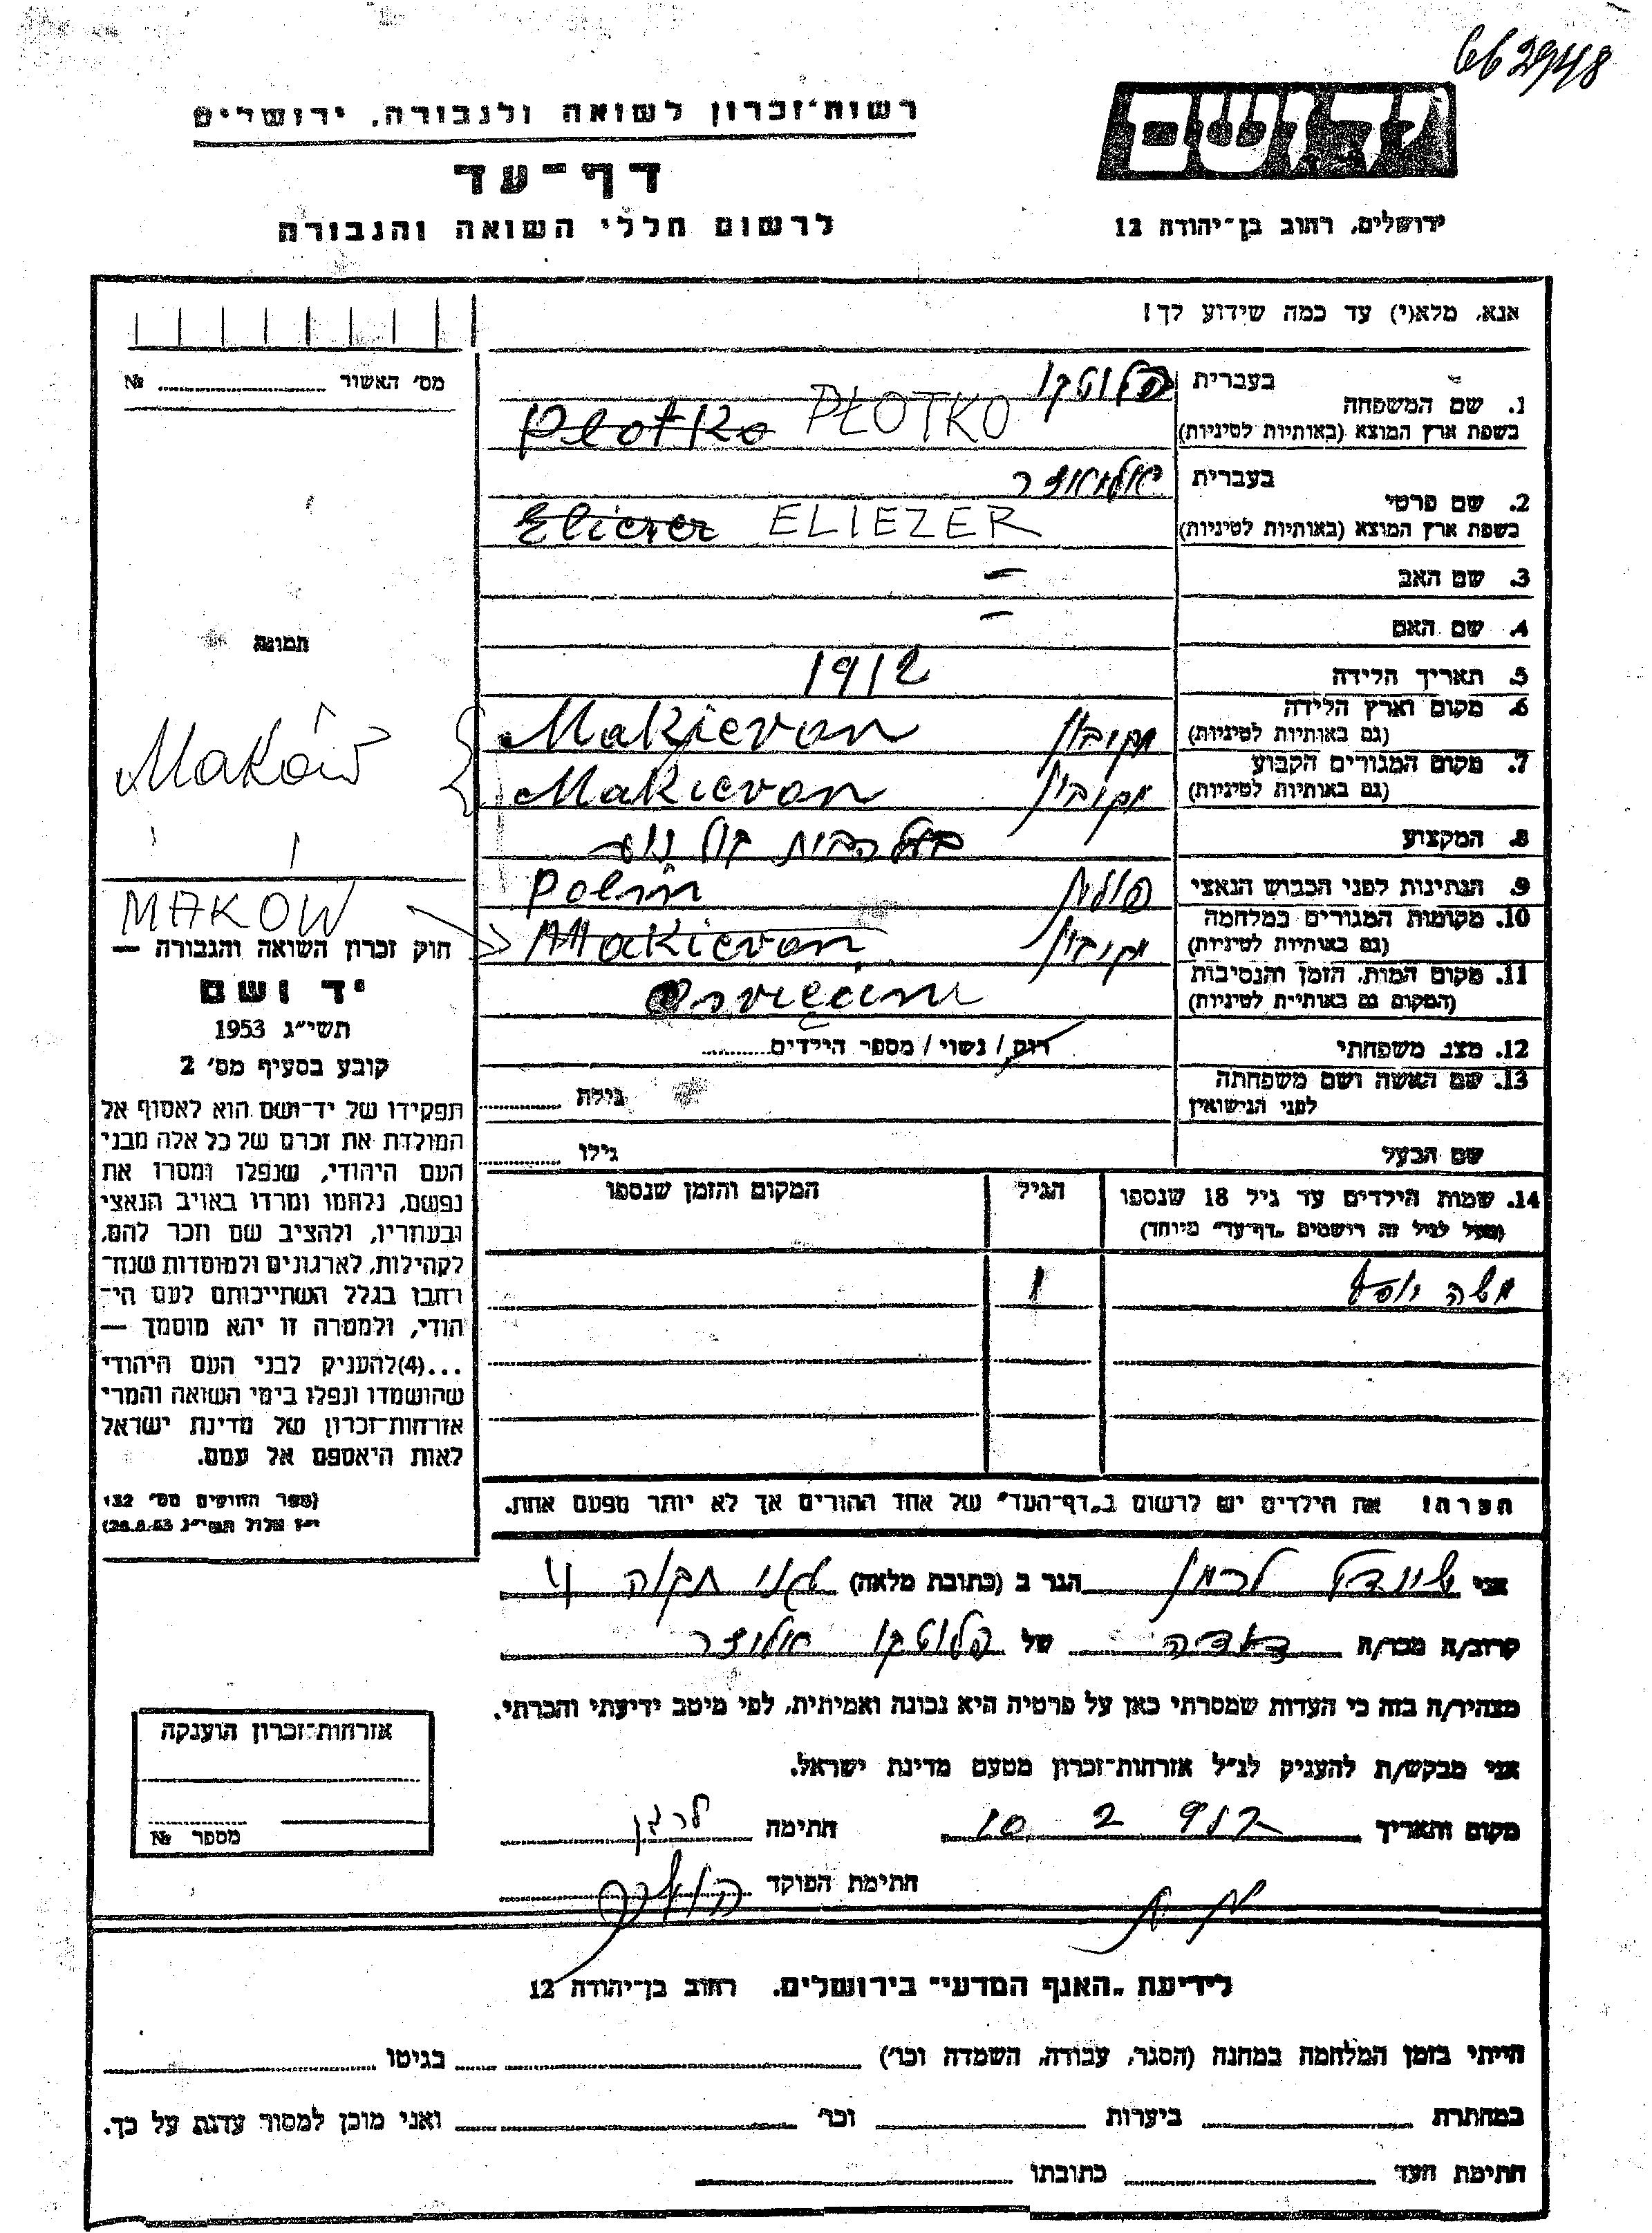 662948
רשות־זכרון לשואה ולגבורה, ירושלים
יד ושם
דף־עד
לרשום חללי השואה והגבורה
ירושלים, רחוב בן־יהודה 12
אנא, מלא(י) עד כמה שידוע לך!
מס' האשור № 
1. שם המשפחה בעברית פלוטקו
בשפת ארץ המוצא (באותיות לטיניות) Plotko PŁOTKO
2. שם פרטי בעברית
בשפת ארץ המוצא (באותיות לטיניות) Eliezer ELIEZER
3. שם האב —
4. שם האם —
תמונה
5. תאריך הלידה 1912
6. מקום וארץ הלידה
(גם באותיות לטיניות) מקיבון Makievon
Maków
7. מקום המגורים הקבוע
(גם באותיות לטיניות) מקיבון Makievon
8. המקצוע
9. הנתינות לפני הכבוש הנאצי פולנית Polin
10. מקומות המגורים במלחמה
(גם באותיות לטיניות) מקיבון Makievon
MAKÓW
11. מקום המות, הזמן והנסיבות
(המקום גם באותיות לטיניות)
12. מצב משפחתי רווק / נשוי / מספר הילדים
13. שם האשה ושם משפחתה
לפני הנישואין גילה
שם הבעל גילו
14. שמות הילדים עד גיל 18 שנספו
(מעל לגיל זה רושמים „דף־עד" מיוחד)
הגיל
המקום והזמן שנספו
משה יוסף 1
הערה! את הילדים יש לרשום ב„דף־העד" של אחד ההורים אך לא יותר מפעם אחת.
חוק זכרון השואה והגבורה —
יד ושם
תשי"ג 1953
קובע בסעיף מס' 2
תפקידו של יד־ושם הוא לאסוף אל
המולדת את זכרם של כל אלה מבני
העם היהודי, שנפלו ומסרו את
נפשם, נלחמו ומרדו באויב הנאצי
ובעוזריו, ולהציב שם וזכר להם,
לקהילות, לארגונים ולמוסדות שנח־
רבו בגלל השתייכותם לעם הי־
הודי, ולמטרה זו יהא מוסמך —
...(4)להעניק לבני העם היהודי
שהושמדו ונפלו בימי השואה והמרי
אזרחות־זכרון של מדינת ישראל
לאות היאספם אל עמם.
(ספר החוקים מס' 132
י"ז אלול תשי"ג 28.8.53)
אני לרמן הגר ב (כתובת מלאה) גאני תקוה 4
קרוב/ה מכר/ה של פלוטקו
מצהיר/ה בזה כי העדות שמסרתי כאן על פרטיה היא נכונה ואמיתית, לפי מיטב ידיעתי והכרתי.
אני מבקש/ת להעניק לנ"ל אזרחות־זכרון מטעם מדינת ישראל.
מקום ותאריך 10 2 חתימה לרמן
חתימת הפוקד
אזרחות־זכרון הוענקה
מספר №
לידיעת „האגף המדעי" בירושלים, רחוב בן־יהודה 12
הייתי בזמן המלחמה במחנה (הסגר, עבודה, השמדה וכו') בגיטו
במחתרת ביערות וכו' ואני מוכן למסור עדות על כך.
חתימת העד כתובתו